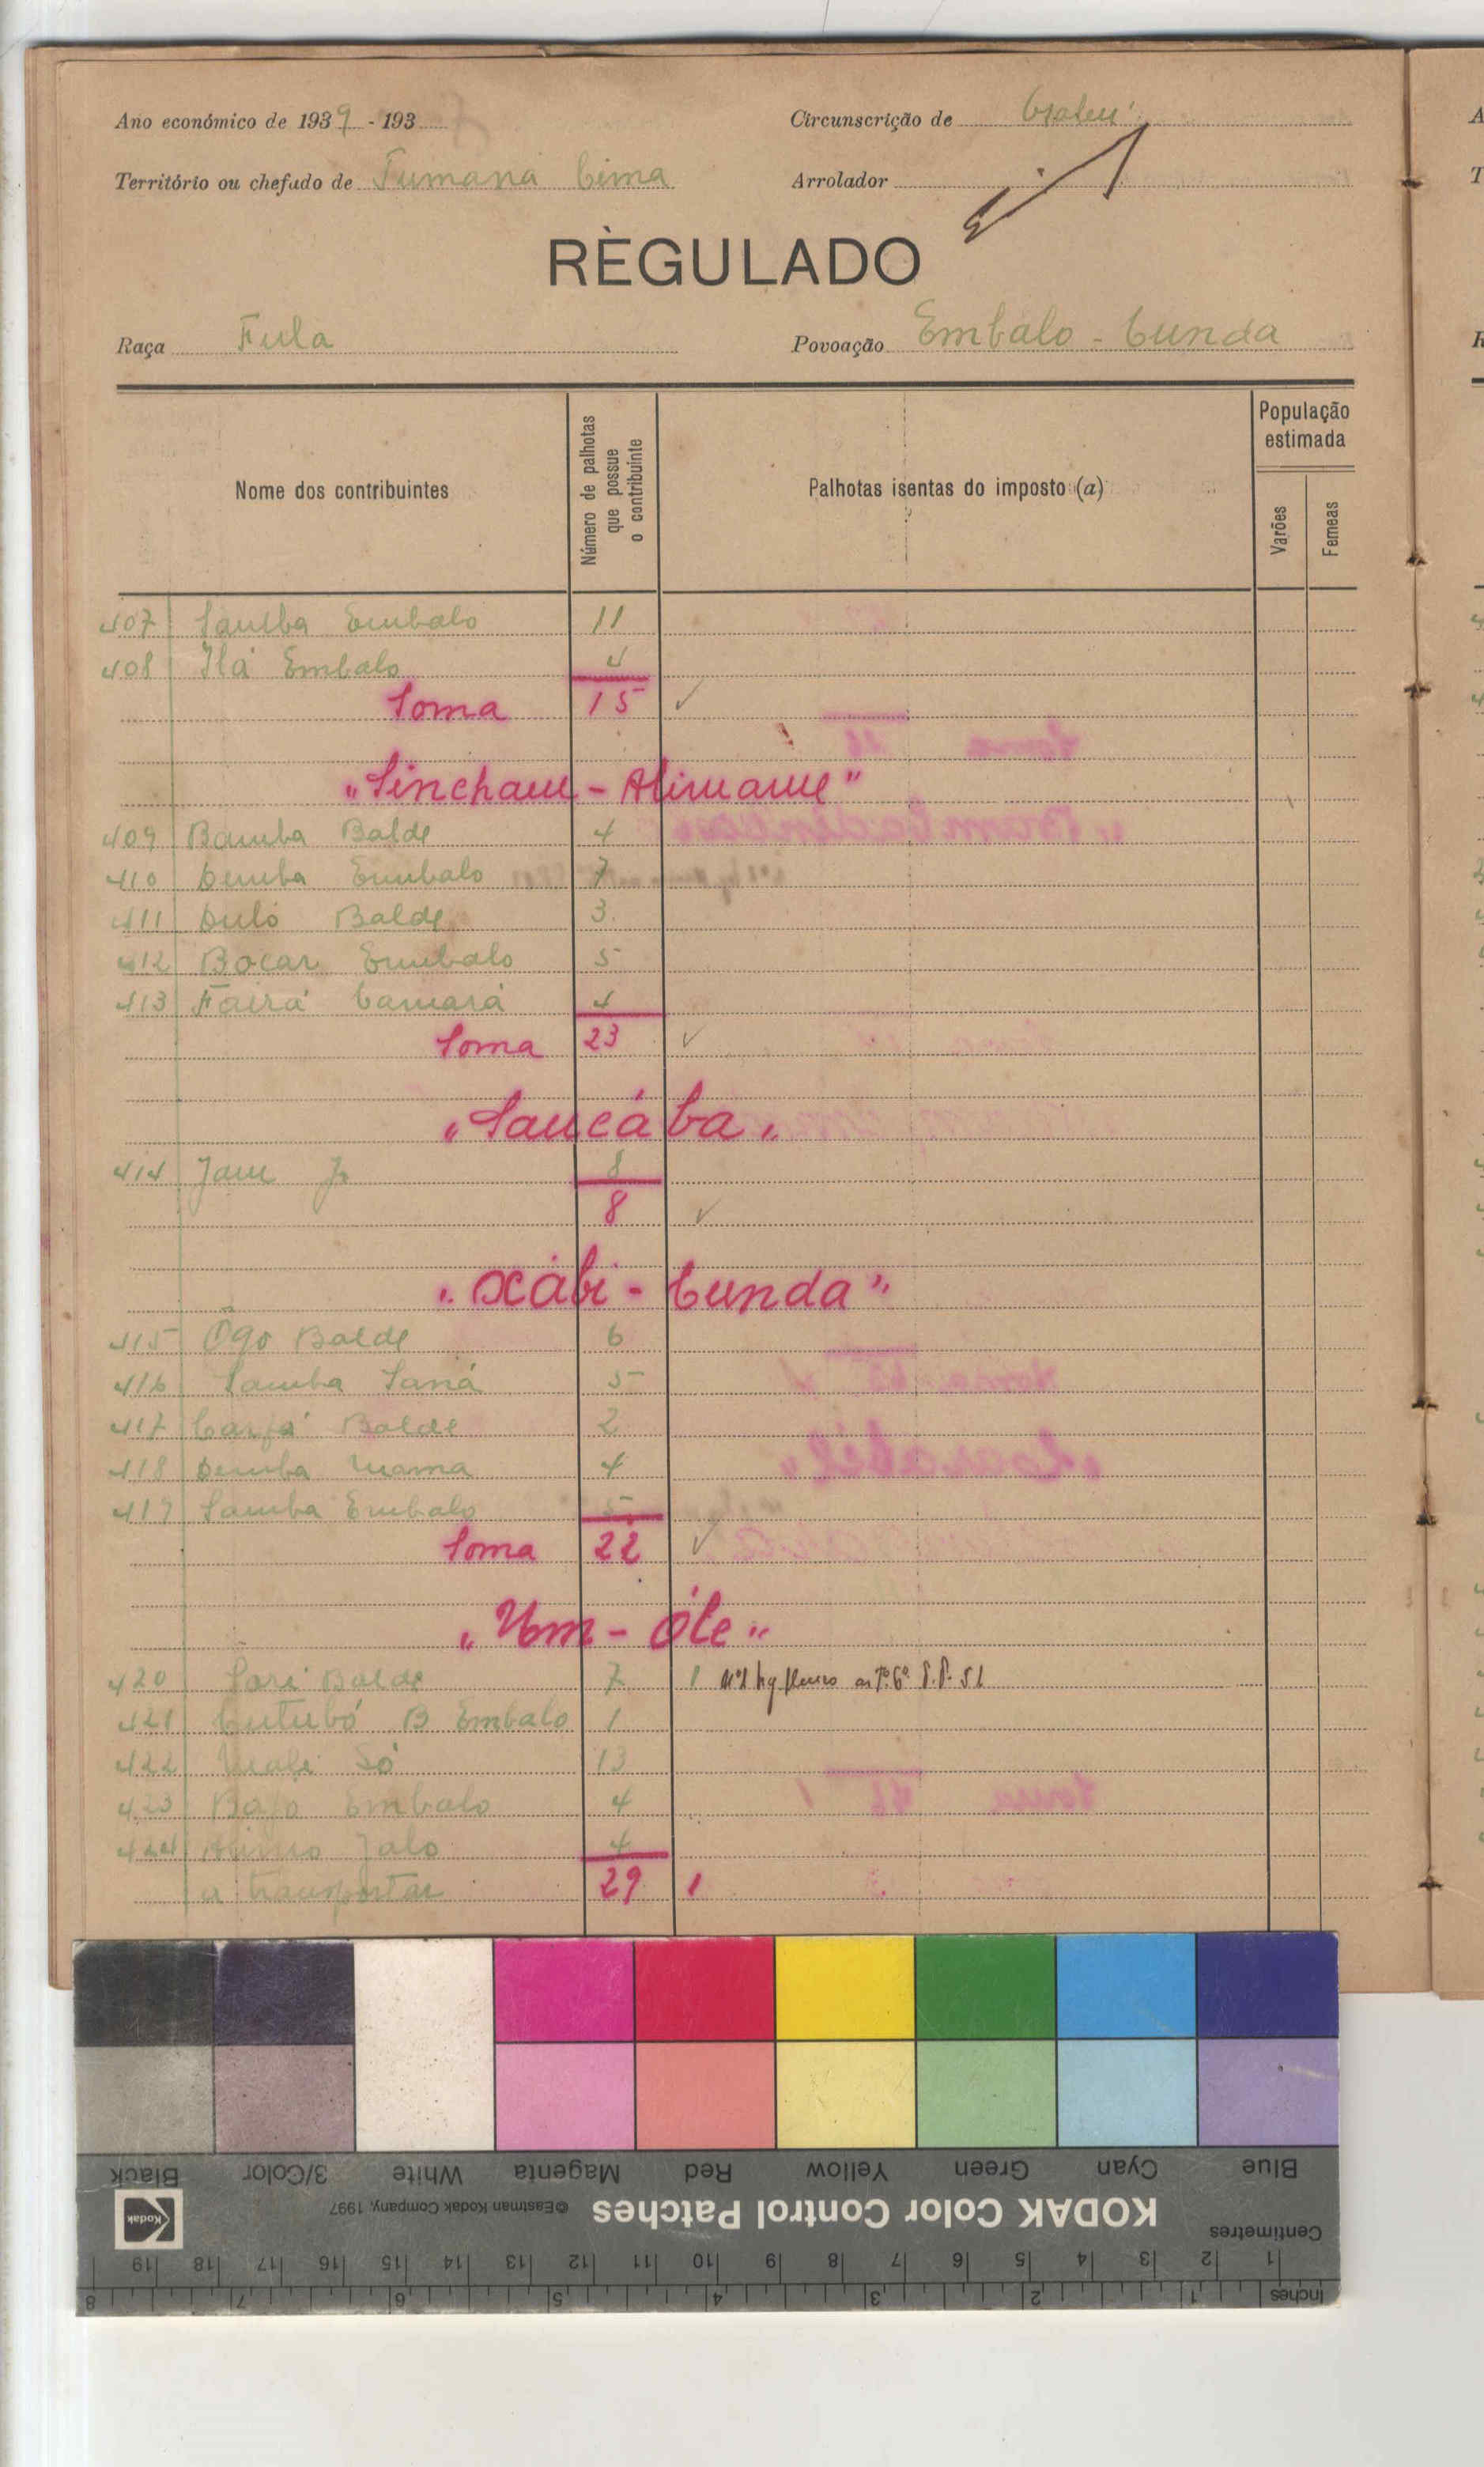 Ano económico de 1939 - 193
Circunscrição de Gabu
Território ou chefado de Tumaná Cima
Arrolador
RÈGULADO
Raça Fula
Povoação Embalo - Cunda
Nome dos contribuintes
Número de palhotas que possue o contribuinte
Palhotas isentas do imposto (a)
População estimada
Varões
Femeas
407 Samba Embalo 11
408 Ilá Embalo 4
Soma 15 ✓
"Sincham - Alimame"
409 Bamba Balde 4
410 Demba Embalo 7
411 Duló Balde 3
412 Bocar Embalo 5
413 Fairá Camará 4
Soma 23 ✓
"Saucába"
414 Jam 8
8 ✓
"Xábi - Cunda"
415 Ogo Balde 6
416 Samba Saná 5
417 Balde 2
418 Demba Mama 4
419 Samba Embalo 5
Soma 22 ✓
"Um - Óle"
420 Sori Balde 7 1
421 Cutubó B Embalo 1
422 Só 13
423 Embalo 4
424 Jalo 4
a transportar 29 1
Black
3/Color
White
Magenta
Red
Yellow
Green
Cyan
Blue
Kodak
©Eastman Kodak Company, 1997
KODAK Color Control Patches
Centimetres
19 18 17 16 15 14 13 12 11 10 9 8 7 6 5 4 3 2 1
8 7 6 5 4 3 2 1
Inches